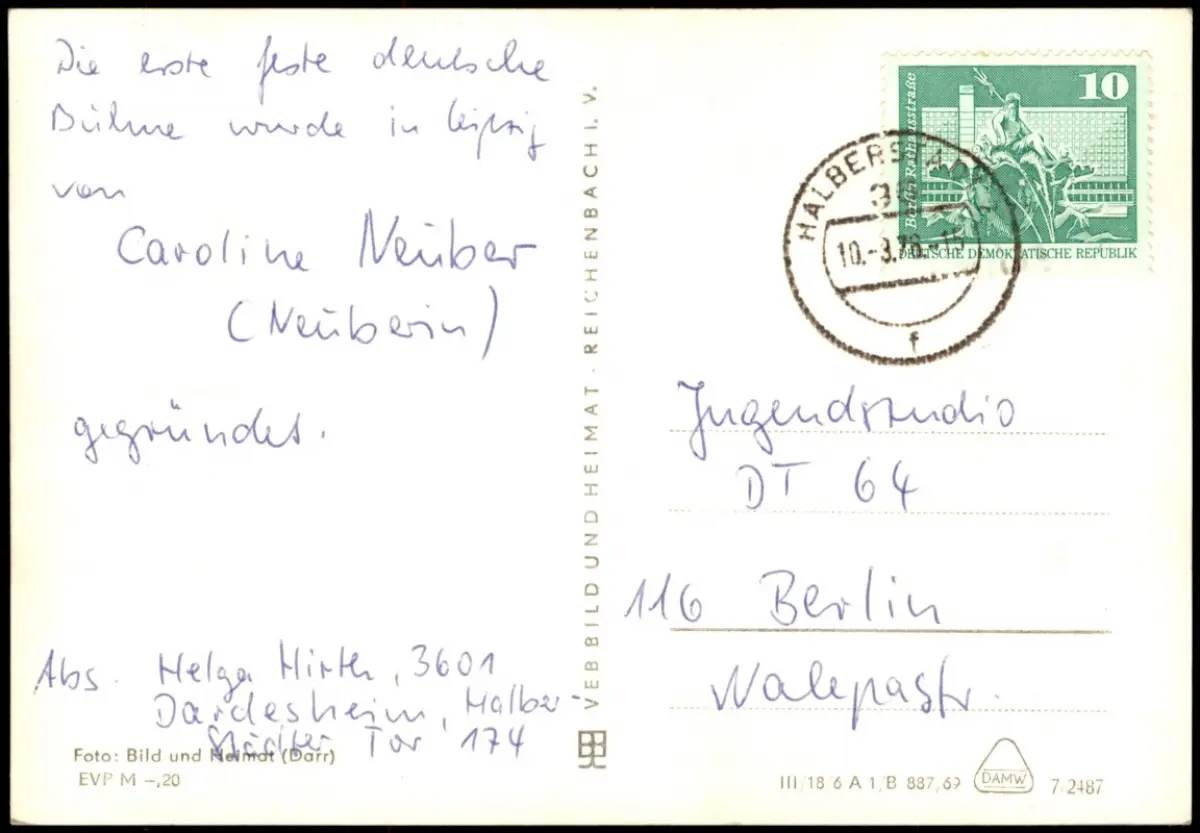 Die erste feste deutsche
Bühne wurde in Leipzig
von
Caroline Neuber
(Neuberin)
gegründet.
Abs. Helga Hirth, 3601
Dardesheim, Halber-
städter Tor 174
Foto: Bild und Heimat (Darr)
EVP M –,20
VEB BILD UND HEIMAT · REICHENBACH I. V.
10
Berlin Rathausstraße
DEUTSCHE DEMOKRATISCHE REPUBLIK
HALBERSTADT
10.-3.76.-15
f
Jugendstudio
DT 64
116 Berlin
Nalepastr.
III/18/6 A 1/B 887/69
DAMW
7/2487